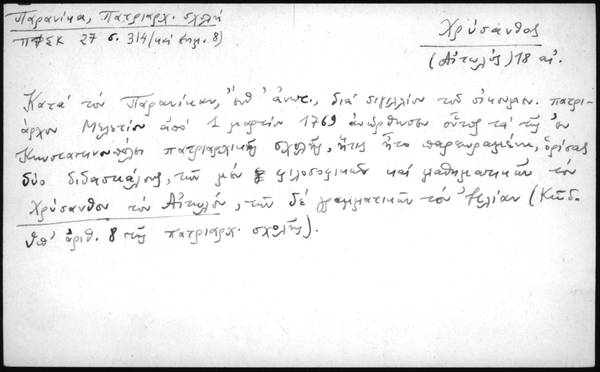 Παρανίκα, Πατριαρχ. σχολή
ΠΦΣΚ 27 σ. 314 (καί σημ. 8)
Χρύσανθος
(Αἰτωλός) 18 αἰ.
Κατά τόν Παρανίκαν, ἔνθ' ἀνωτ., διά σιγιλλίου τοῦ οἰκουμεν. πατρι-
άρχου Μελετίου ἀπό 1 μαρτίου 1769 ἀνώρθησεν οὗτος τά τῆς ἐν
Κωνσταντινουπόλει πατριαρχικῆς σχολῆς, ἥτις ἦτο παρηκμασμένη, ὁρίσας
δύο διδασκάλους, τῶν μέν φιλοσοφικῶν καί μαθηματικῶν τόν
Χρύσανθον τόν Αἰτωλόν, τῶν δέ γραμματικῶν τόν (Κῶδ.
ὑπ' ἀριθ. 8 τῆς πατριαρχ. σχολῆς).